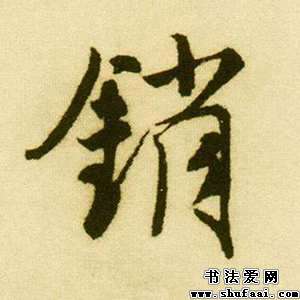 銷
书法爱网
www.shufaai.com